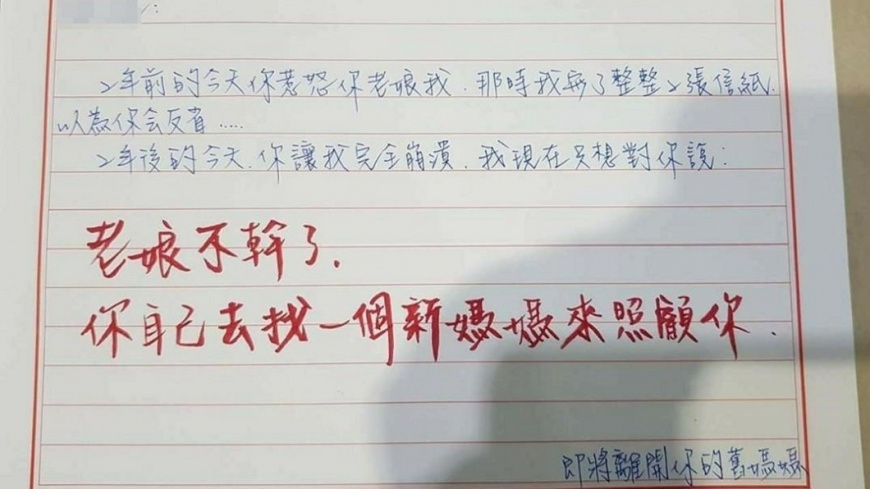 :
2年前的今天你惹怒你老娘我.那時我寫了整整2張信紙.
以為你会反省.....
2年後的今天.你讓我完全崩潰.我現在只想對你說:
老娘不幹了.
你自己去找一個新媽媽來照顧你.
即將離開你的舊媽媽